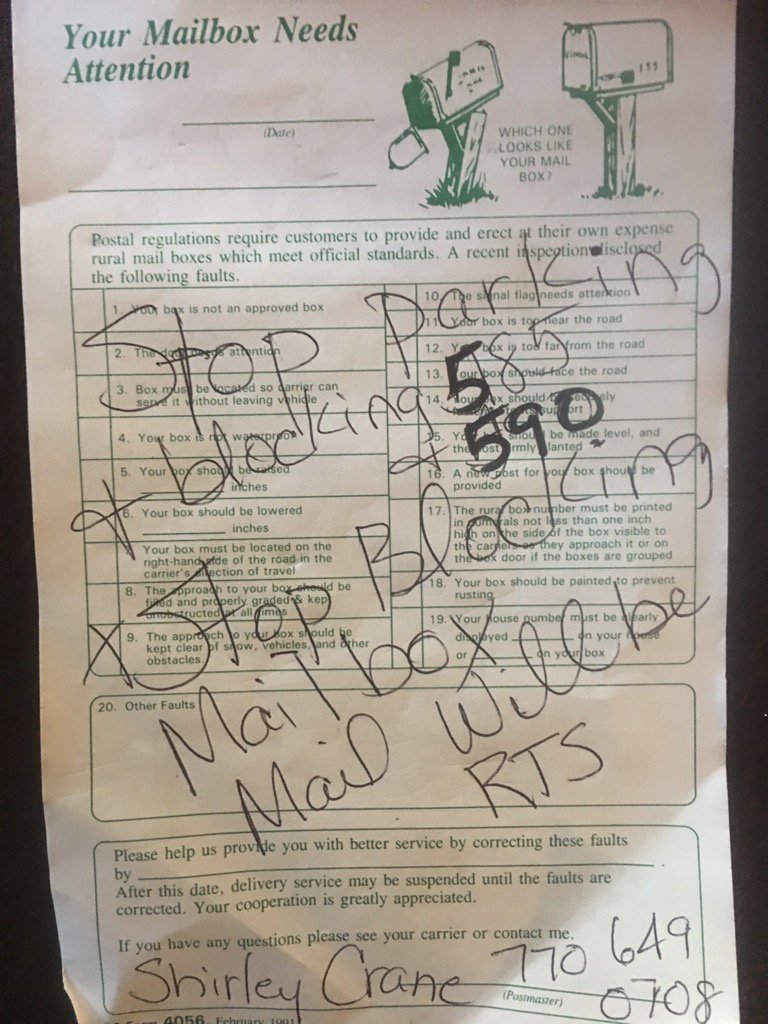 Your Mailbox Needs
Attention
(Date)
WHICH ONE
LOOKS LIKE
YOUR MAIL
BOX?
155
Postal regulations require customers to provide and erect at their own expense
rural mail boxes which meet official standards. A recent inspection disclosed
the following faults.
1. Your box is not an approved box
2. The door needs attention
3. Box must be located so carrier can
serve it without leaving vehicle
4. Your box is not waterproof
5. Your box should be raised
inches
6. Your box should be lowered
inches
Your box must be located on the
right-hand side of the road in the
carrier's direction of travel
8. The approach to your box should be
filled and properly graded & kept
unobstructed at all times
X
9. The approach to your box should be
kept clear of snow, vehicles, and other
obstacles.
10. The signal flag needs attention
11. Your box is too near the road
12. Your box is too far from the road
13. Your box should face the road
14. Your box should be securely
support
15. Your should be made level, and
the post firmly planted
16. A new post for your box should be
provided
17. The rural box number must be printed
in numerals not less than one inch
high on the side of the box visible to
the carriers as they approach it or on
the box door if the boxes are grouped
18. Your box should be painted to prevent
rusting
19. Your house number must be clearly
displayed on your house
or on your box
Stop Parking
+ blocking 585
+ 590
Stop Blocking
Mailbox
Mail Will be
RTS
20. Other Faults
Please help us provide you with better service by correcting these faults
by
After this date, delivery service may be suspended until the faults are
corrected. Your cooperation is greatly appreciated.
If you have any questions please see your carrier or contact me.
Shirley Crane 770 649
0708
(Postmaster)
4056, February 1991